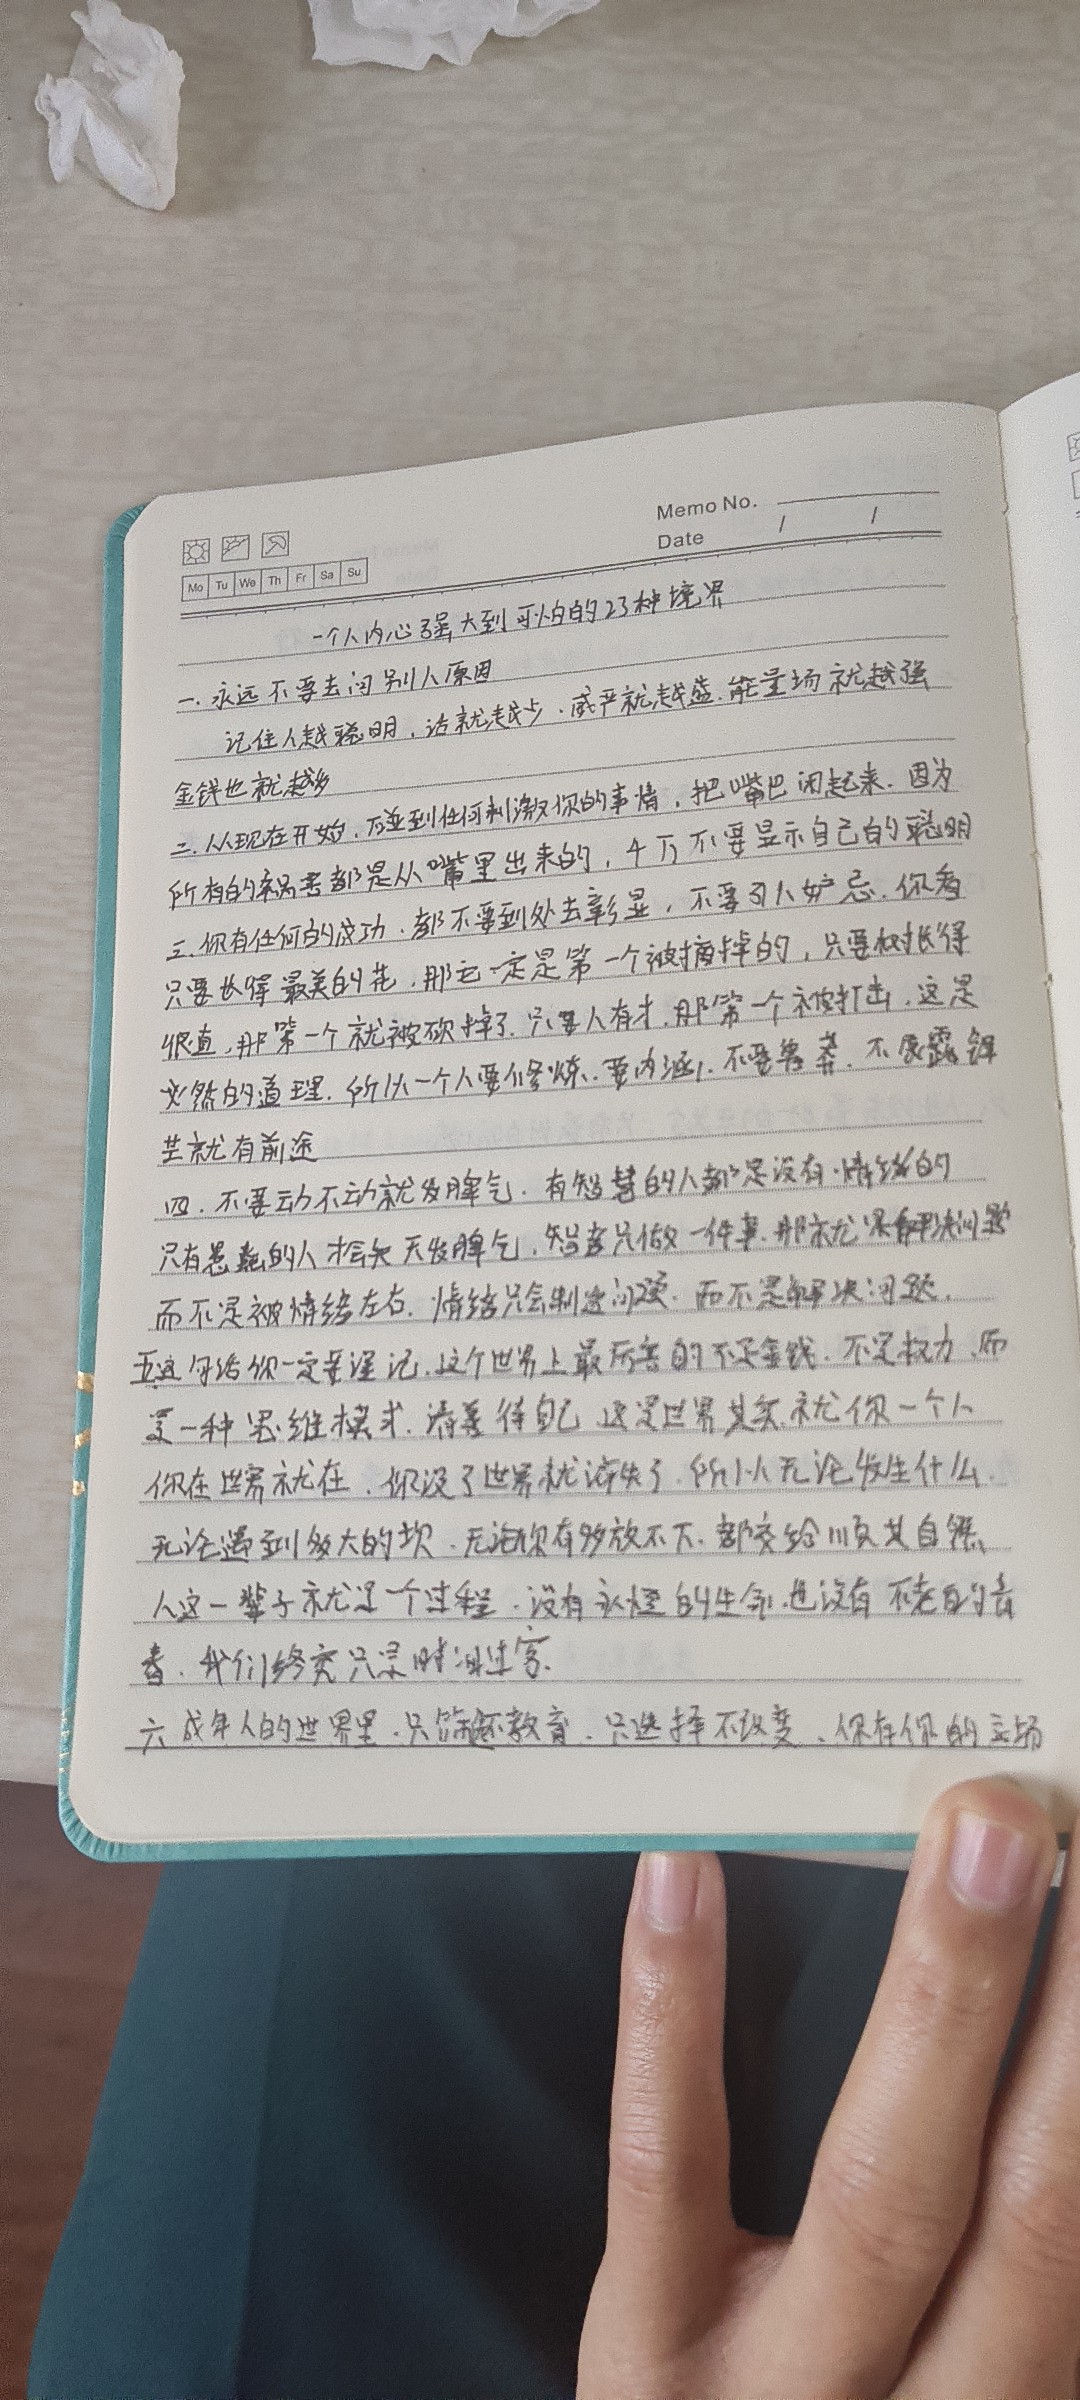 Memo No.
Date / /
Mo Tu We Th Fr Sa Su
一个人内心强大到可怕的23种境界
一.永远不要去问别人原因
记住人越聪明，话就越少.威严就越盛.能量场就越强
金钱也就越多
二.从现在开始.碰到任何刺激你的事情，把嘴巴闭起来.因为
所有的祸害都是从嘴里出来的，千万不要显示自己的聪明
三.你有任何的成功.都不要到处去彰显，不要引人妒忌.你看
只要长得最美的花，那它一定是第一个被摘掉的，只要树长得
很直，那第一个就被砍掉了.只要人有才.那第一个被打击.这是
必然的道理.所以一个人要修炼.要内涵.不要鲁莽.不展露锋
芒就有前途
四.不要动不动就发脾气.有智慧的人都是没有情绪的
只有愚蠢的人才会天天发脾气.智者只做一件事.那就是解决问题
而不是被情绪左右.情绪只会制造问题.而不是解决问题.
五这句话你一定要谨记.这个世界上最厉害的不是金钱.不是权力.而
是一种思维模式.请善待自己 这是世界其实就你一个人
你在世界就在.你没了世界就消失了.所以无论发生什么.
无论遇到多大的坎.无论你有多放不下.都交给顺其自然
人这一辈子就是一个过程.没有永恒的生命.也没有不老的青
春.我们终究只是时间过客.
六成年人的世界里.只筛选不教育.只选择不改变.你有你的立场